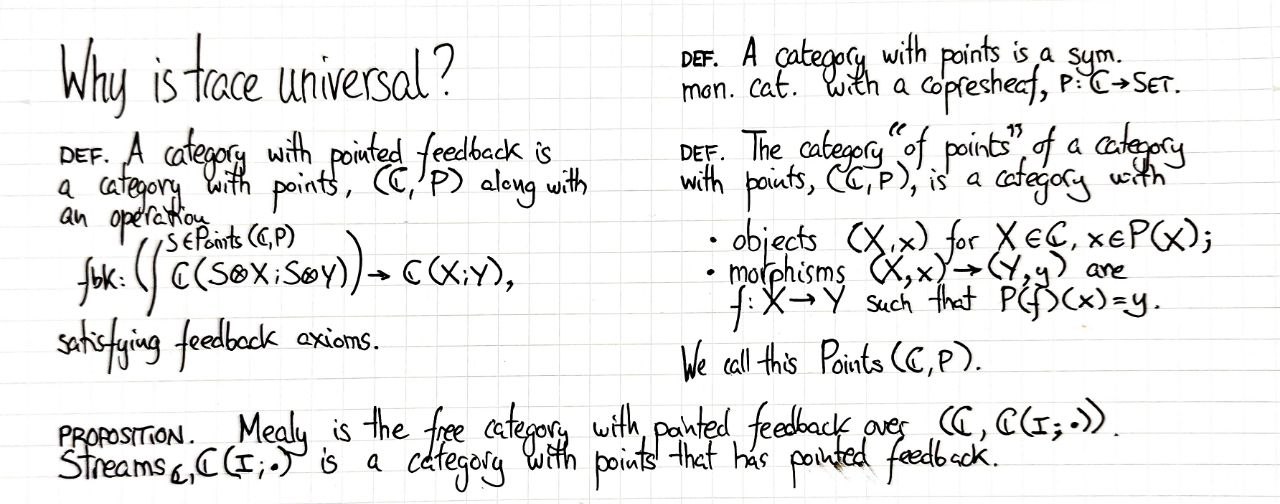 Why is trace universal?
DEF. A category with pointed feedback is
a category with points, (ℂ, P) along with
an operation
fbk: (∫^{S∈Points(ℂ,P)} ℂ(S⊗X; S⊗Y)) → ℂ(X;Y),
satisfying feedback axioms.
DEF. A category with points is a sym.
mon. cat. with a copresheaf, P: ℂ→SET.
DEF. The category “of points” of a category
with points, (ℂ, P), is a category with
• objects (X,x) for X∈ℂ, x∈P(X);
• morphisms (X,x)→(Y,y) are
f: X→Y such that P(f)(x)=y.
We call this Points(ℂ,P).
PROPOSITION. Mealy is the free category with pointed feedback over (ℂ, ℂ(I;•)).
Streams_ℂ, ℂ(I;•) is a category with points that has pointed feedback.